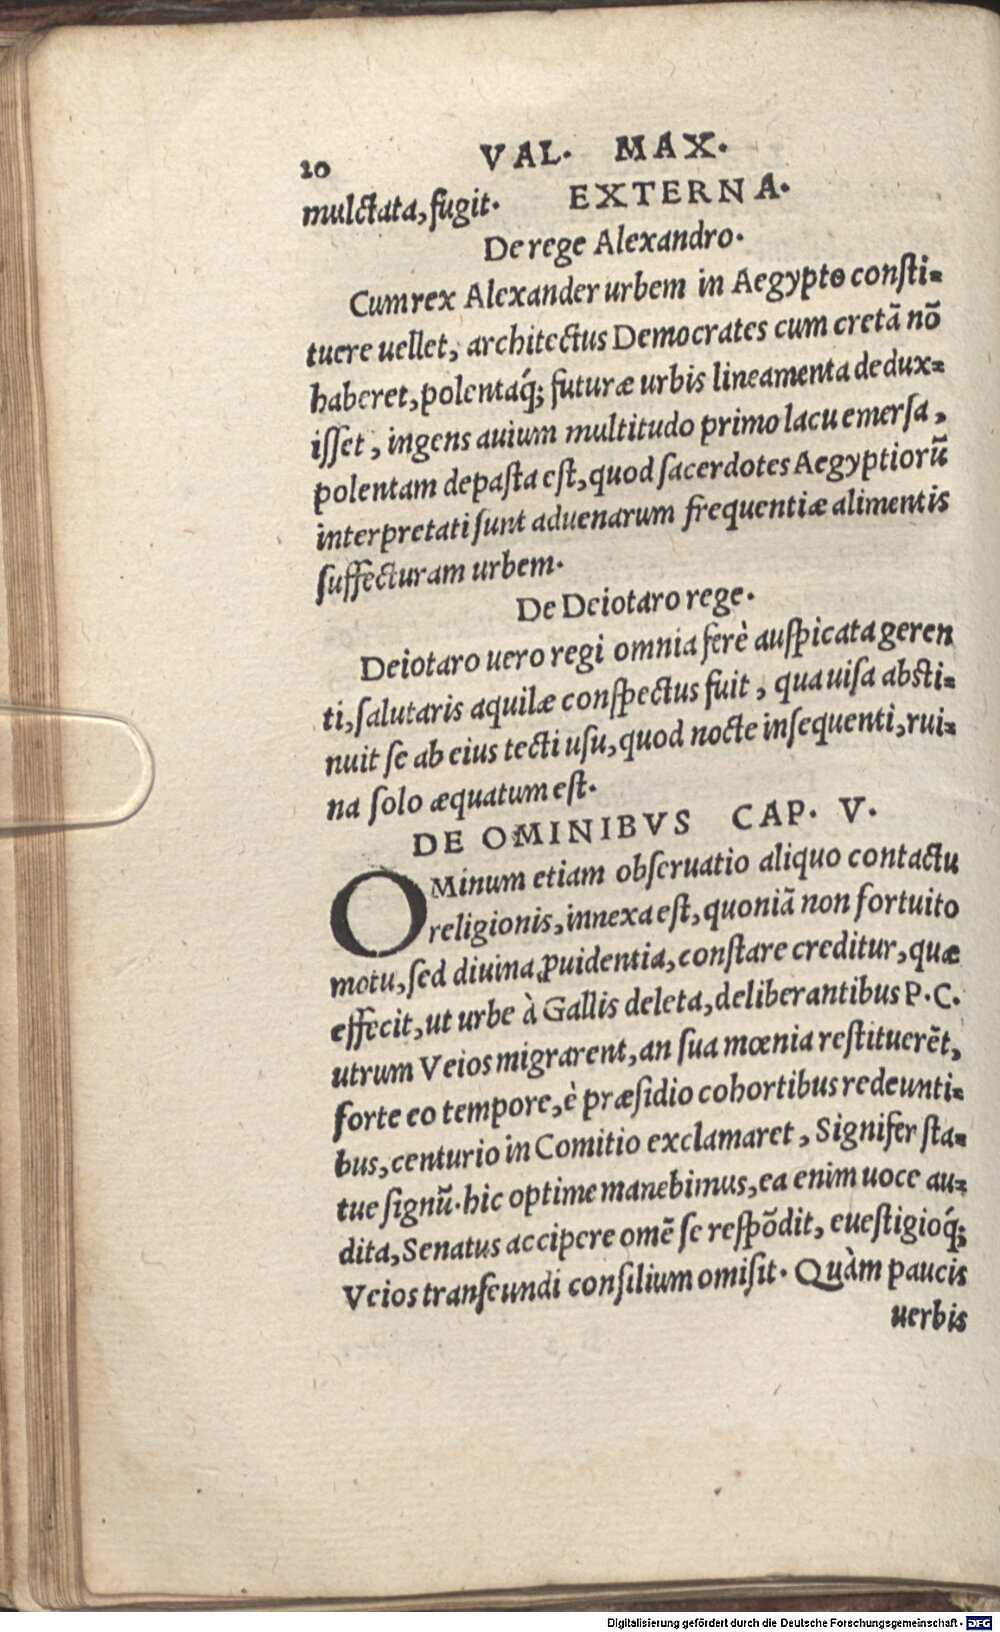 20 VAL. MAX.
mulctata, fugit. EXTERNA.
De rege Alexandro.
Cum rex Alexander urbem in Aegypto consti=
tuere uellet, architectus Democrates cum cretã nõ
haberet, polentaq́; futuræ urbis lineamenta dedux=
isset, ingens auium multitudo primo lacu emersa,
polentam depasta est, quod sacerdotes Aegyptiorũ
interpretati sunt aduenarum frequentiæ alimentis
suffecturam urbem.
De Deiotaro rege.
Deiotaro uero regi omnia ferè auspicata geren
ti, salutaris aquilæ conspectus fuit, qua uisa absti=
nuit se ab eius tecti usu, quod nocte insequenti, rui=
na solo æquatum est.
DE OMINIBVS CAP. V.
OMinum etiam obseruatio aliquo contactu
religionis, innexa est, quoniã non fortuito
motu, sed diuina ꝓuidentia, constare creditur, quæ
effecit, ut urbe à Gallis deleta, deliberantibus P.C.
utrum Veios migrarent, an sua mœnia restituerẽt,
forte eo tempore, è præsidio cohortibus redeunti=
bus, centurio in Comitio exclamaret, Signifer sta=
tue signũ. hic optime manebimus, ea enim uoce au=
dita, Senatus accipere omẽ se respõdit, euestigioq́;
Veios transeundi consilium omisit. Quàm paucis
uerbis
Digitalisierung gefördert durch die Deutsche Forschungsgemeinschaft - DFG